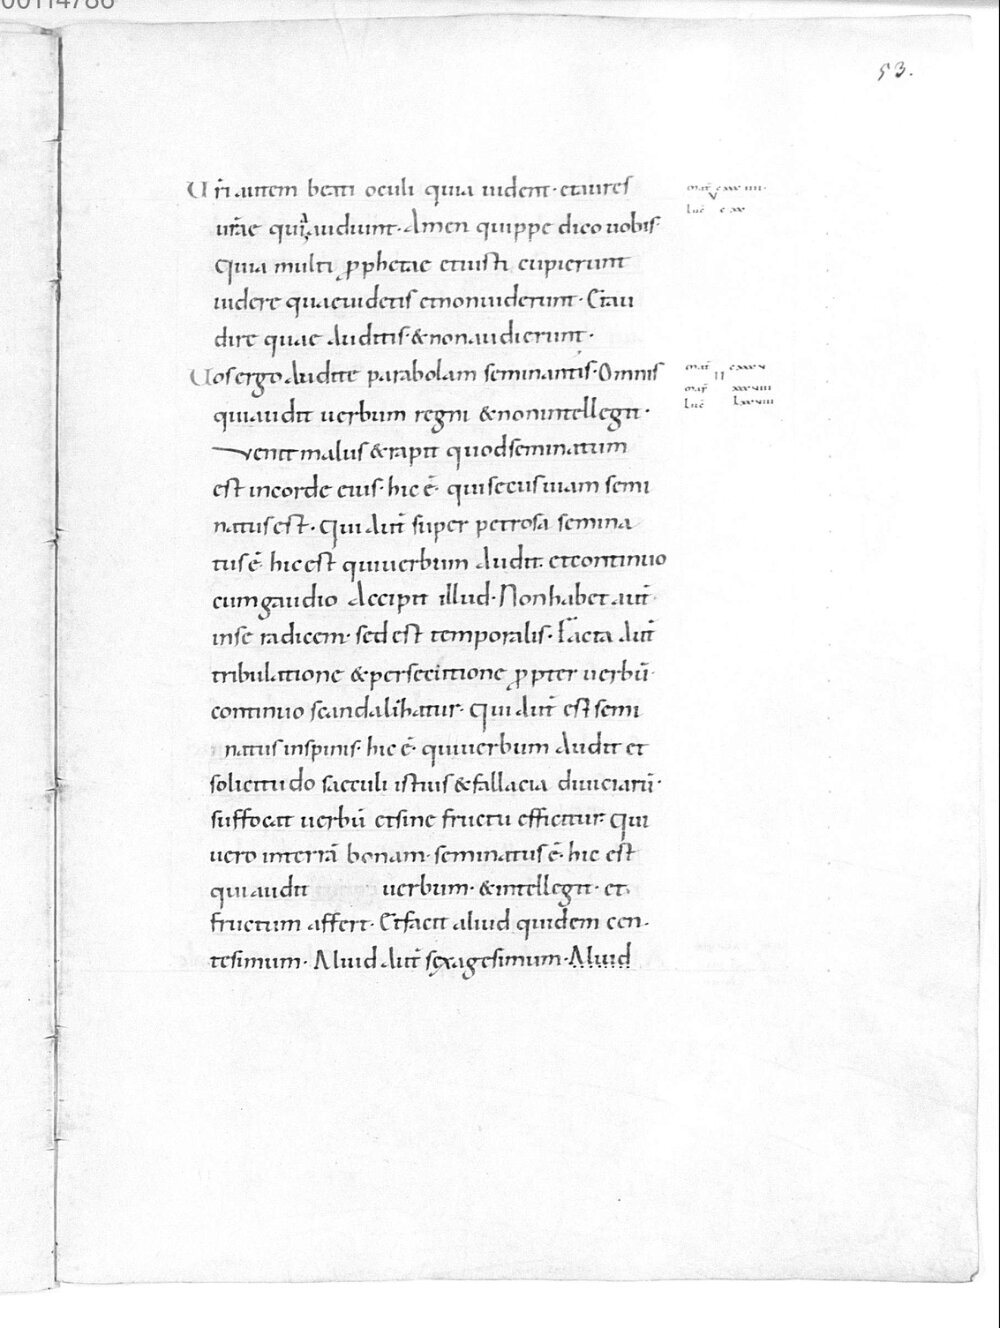 53.
Uri autem beati oculi quia uident· et aures
urae quia audiunt· Amen quippe dico uobis·
Quia multi pphetae et iusti cupierunt
uidere quae uidetis et non uiderunt· Et au
dire quae auditis· & non audierunt·
Uos ergo audite parabolam seminantis· Omnis
qui audit uerbum regni & non intellegit·
Venit malus & rapit quod seminatum
est in corde eius· hic ē· qui secus uiam semi
natus est· Qui aut super petrosa semina
tus ē· hic est qui uerbum audit· et continuo
cum gaudio accipit illud· Non habet aut·
in se radicem· sed est temporalis· Facta aut
tribulatione & persecutione ppter uerbū·
continuo scandalizatur· Qui aut est semi
natus in spinis· hic ē· qui uerbum audit et
solicitudo saeculi istius & fallacia diuiciarū·
suffocat uerbū et sine fructu efficitur· Qui
uero in terrā bonam· seminatus ē· hic est
qui audit uerbum· & intellegit· et
fructum affert· Et facit aliud quidem cen·
tesimum· Aliud aut sexagesimum· Aliud